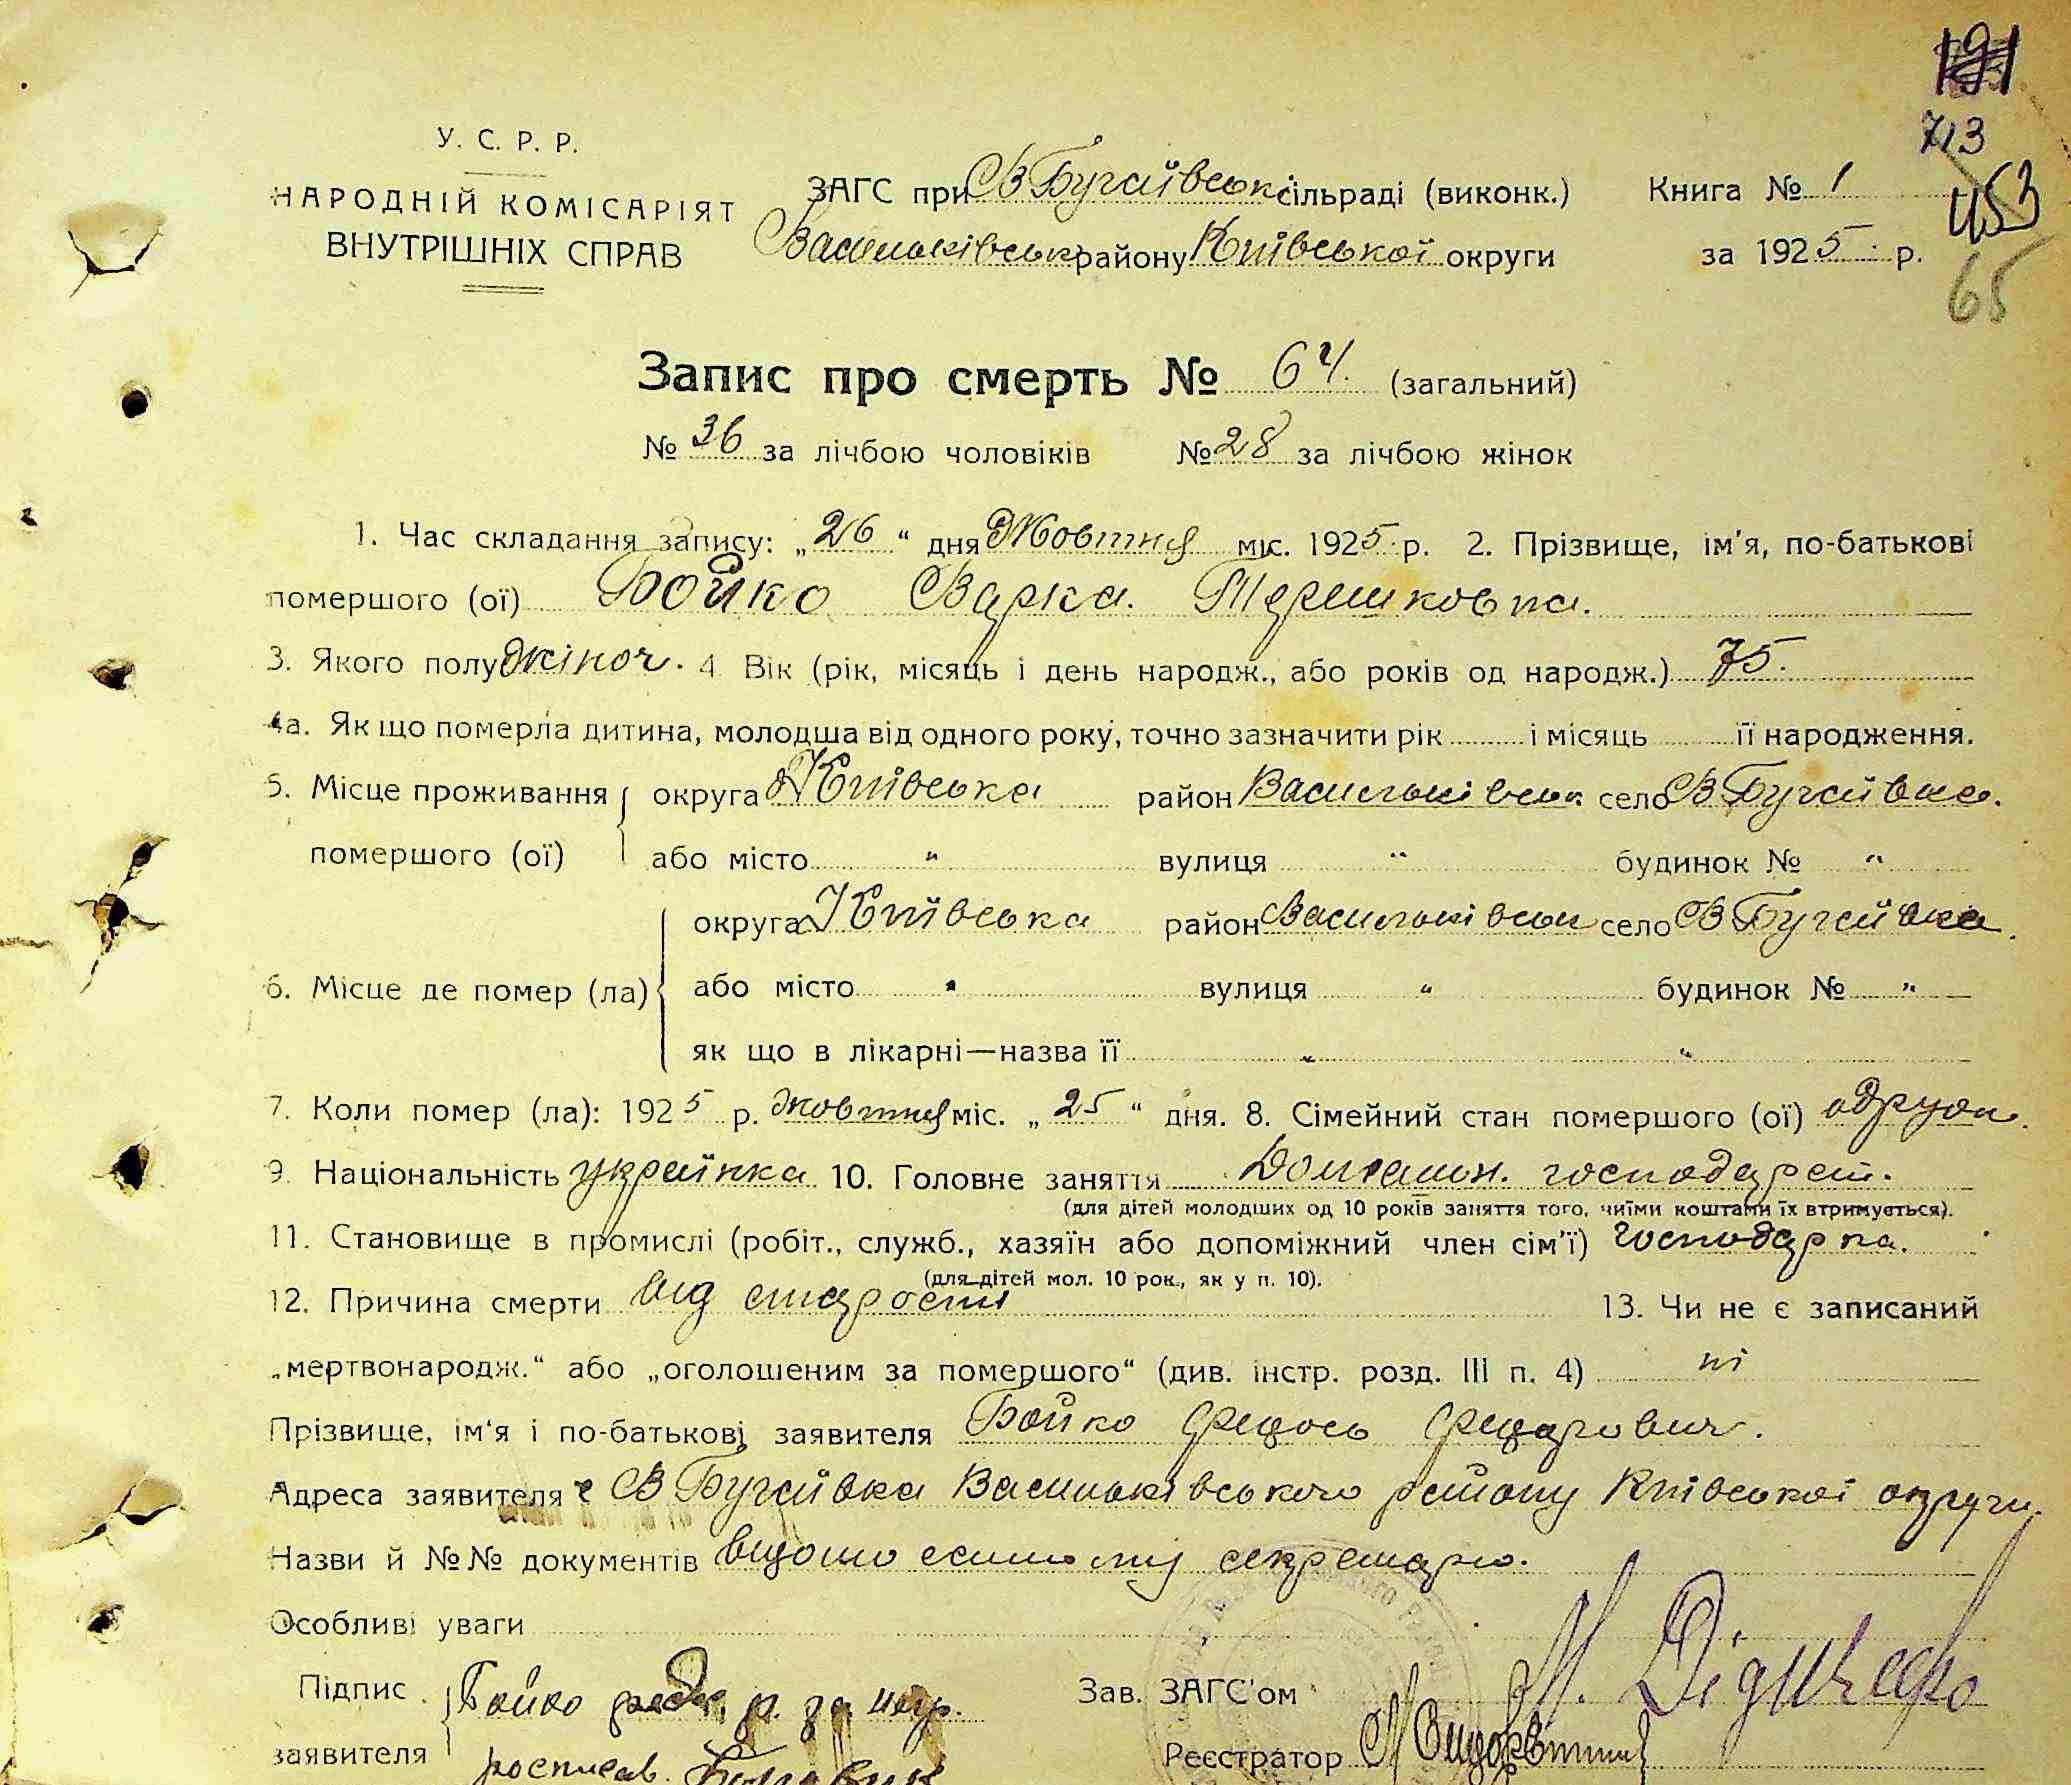 191
713
У. С. Р. Р.
453
НАРОДНІЙ КОМІСАРІЯТ
ЗАГС при В Бугаївськ сільраді (виконк.) Книга № 1
ВНУТРІШНІХ СПРАВ
Васильківськ району Київської округи за 1925 р.
65
Запис про смерть № 64. (загальний)
№ 36 за лічбою чоловіків № 28 за лічбою жінок
1. Час складання запису: „26“ дня Жовтня міс. 1925 р. 2. Прізвище, ім'я, по-батькові
помершого (ої) Бойко Варка. Терешковна.
3. Якого полу жіноч. 4 Вік (рік, місяць і день народж., або років од народж.) 75.
4а. Як що померла дитина, молодша від одного року, точно зазначити рік і місяць її народження.
5. Місце проживання округа Київська район Васильківськ село В Бугаївка.
помершого (ої) або місто " вулиця " будинок № "
округа Київська район Васильківськ село В Бугаївка.
6. Місце де помер (ла) або місто " вулиця " будинок № "
як що в лікарні—назва її " "
7. Коли помер (ла): 1925 р. жовтня міс. „25“ дня. 8. Сімейний стан помершого (ої) одруж.
9. Національність украінка 10. Головне заняття Домашн. господарст.
(для дітей молодших од 10 років заняття того, чиїми коштами їх втримується).
11. Становище в промислі (робіт., служб., хазяїн або допоміжний член сім'ї) господарка.
(для дітей мол. 10 рок., як у п. 10).
12. Причина смерти від старости 13. Чи не є записаний
„мертвонародж.“ або „оголошеним за помершого“ (див. інстр. розд. III п. 4) ні
Прізвище, ім'я і по-батькові заявителя Бойко Федось Федорович.
Адреса заявителя В Бугаївка Васильківського району Київської округи.
Назви й №№ документів відомо секретарю.
Особливі уваги
Підпис Бойко за негр. Зав. ЗАГС'ом М. Дідиченко
заявителя росписав. Реєстратор